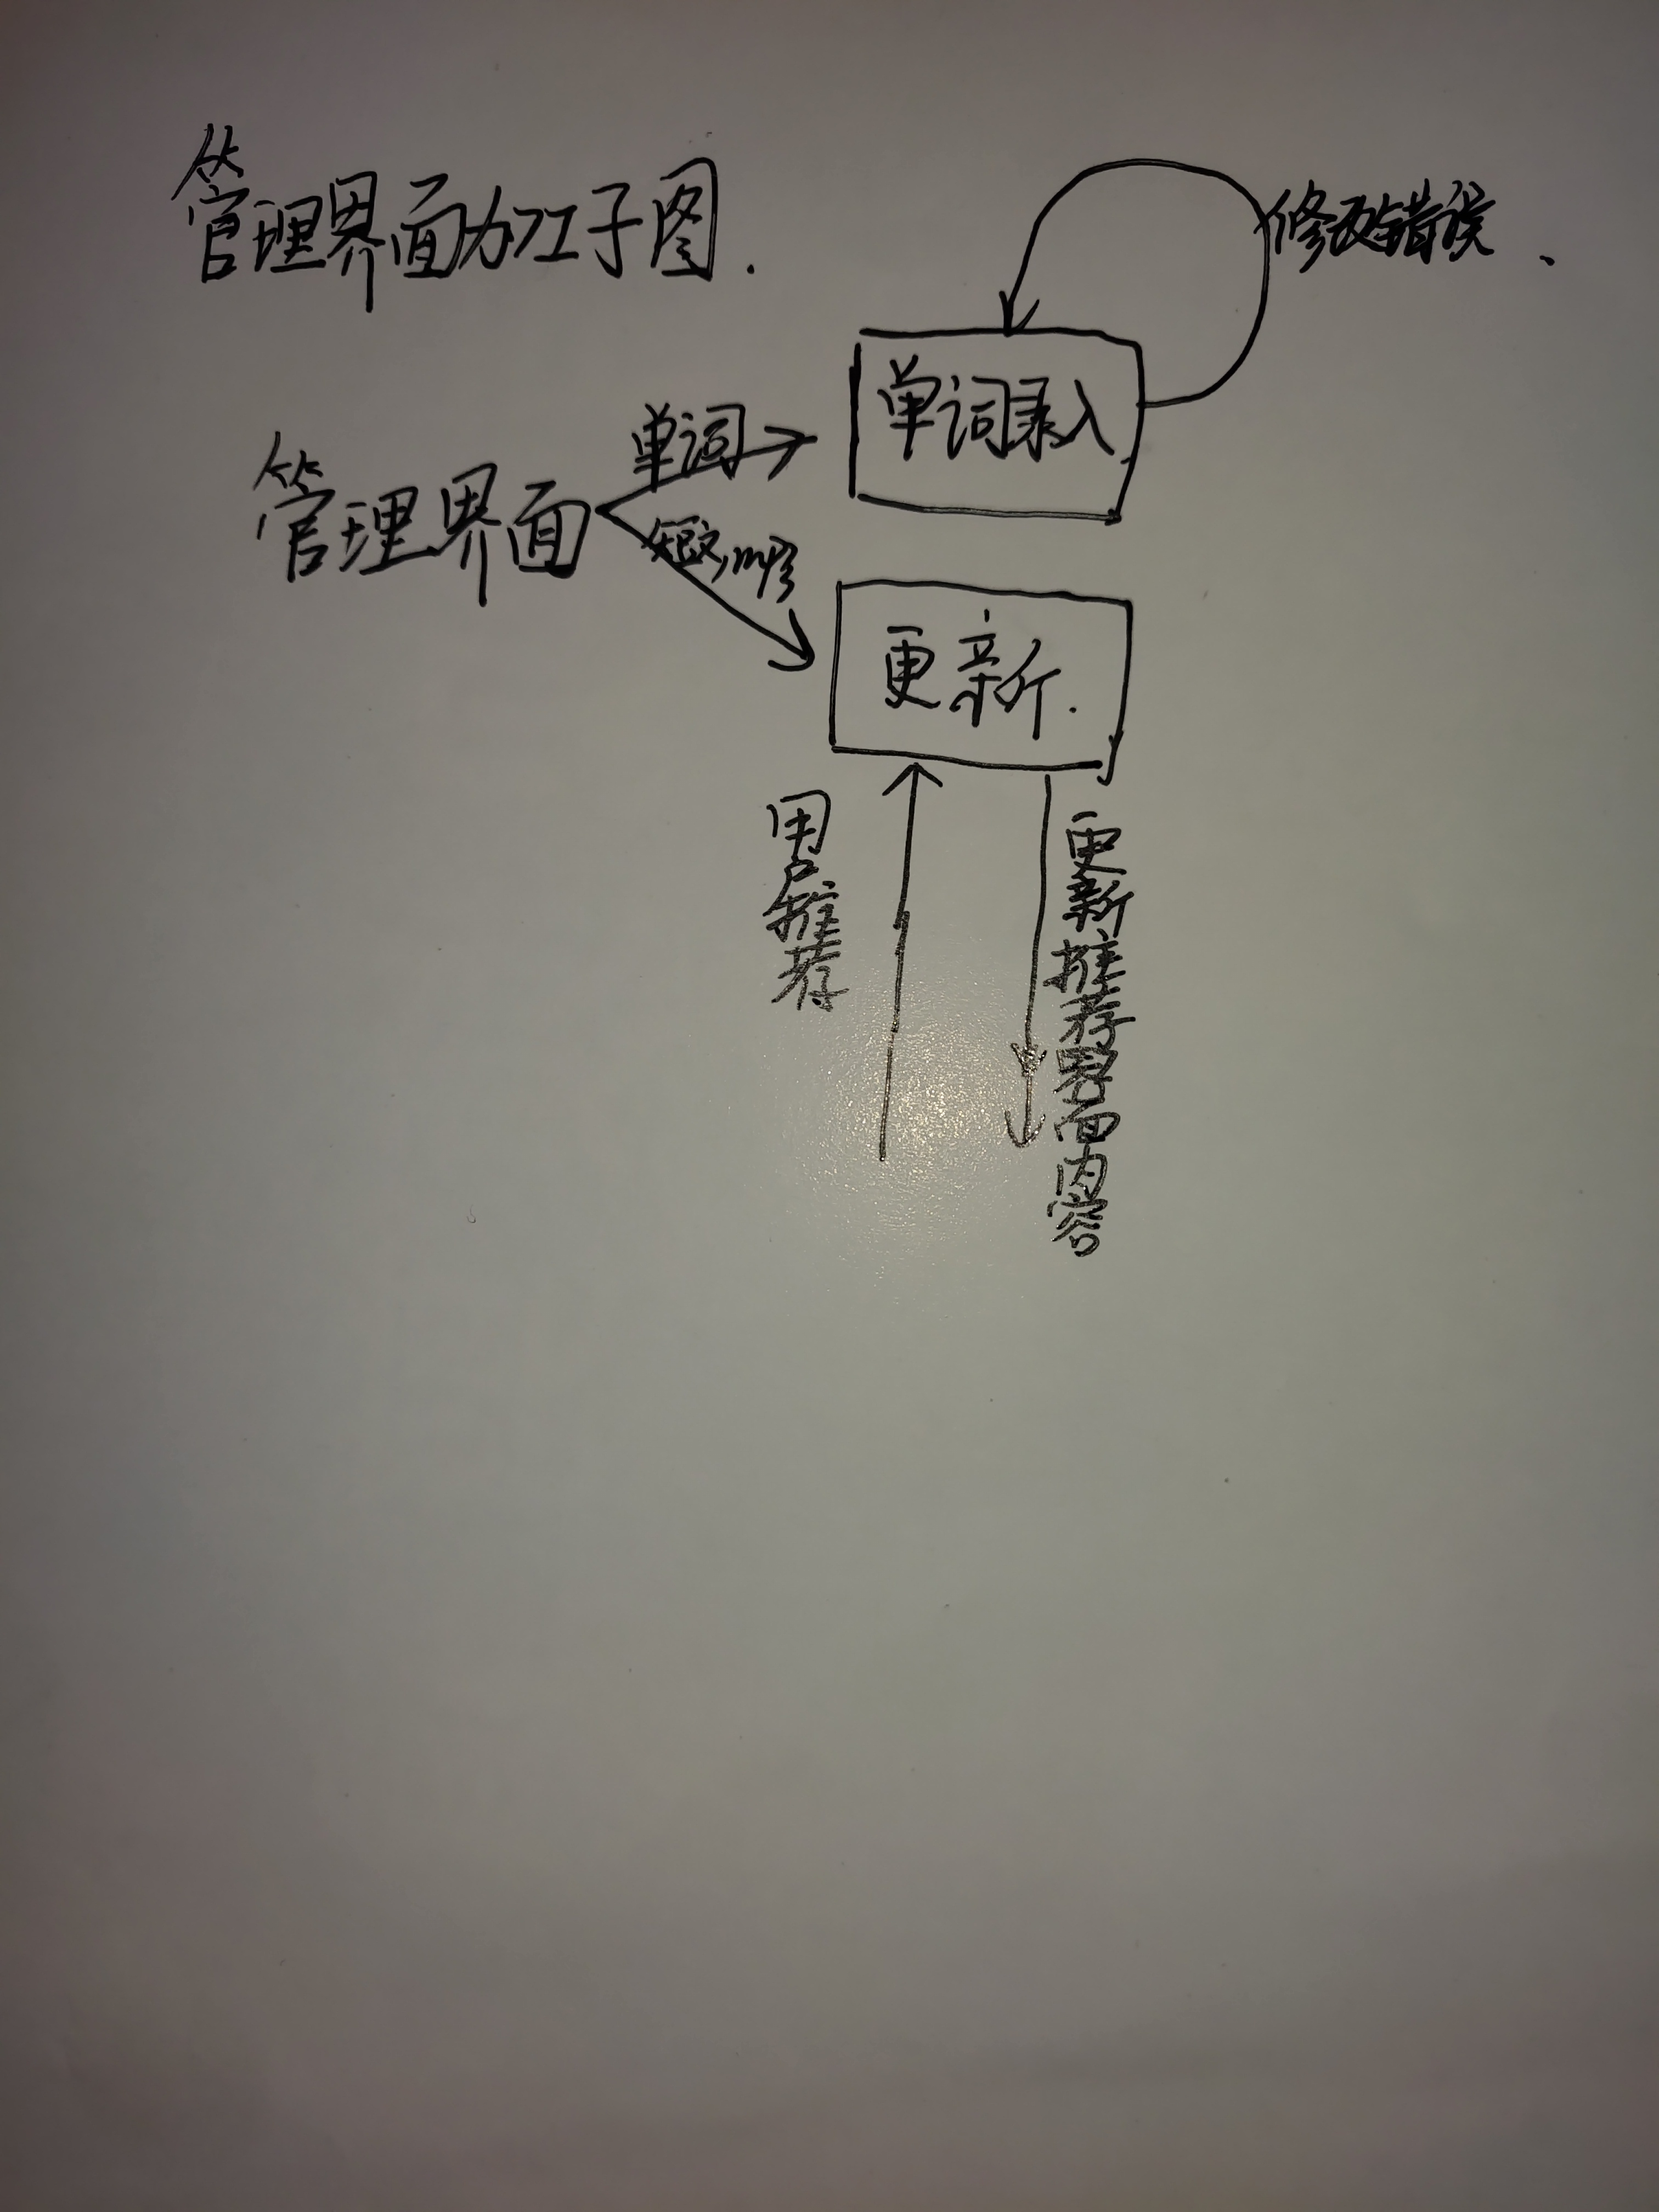 管理界面加工子图.
修改错误.
单词录入
单词
管理界面
短文,
更新.
用户推荐
更新推荐界面内容